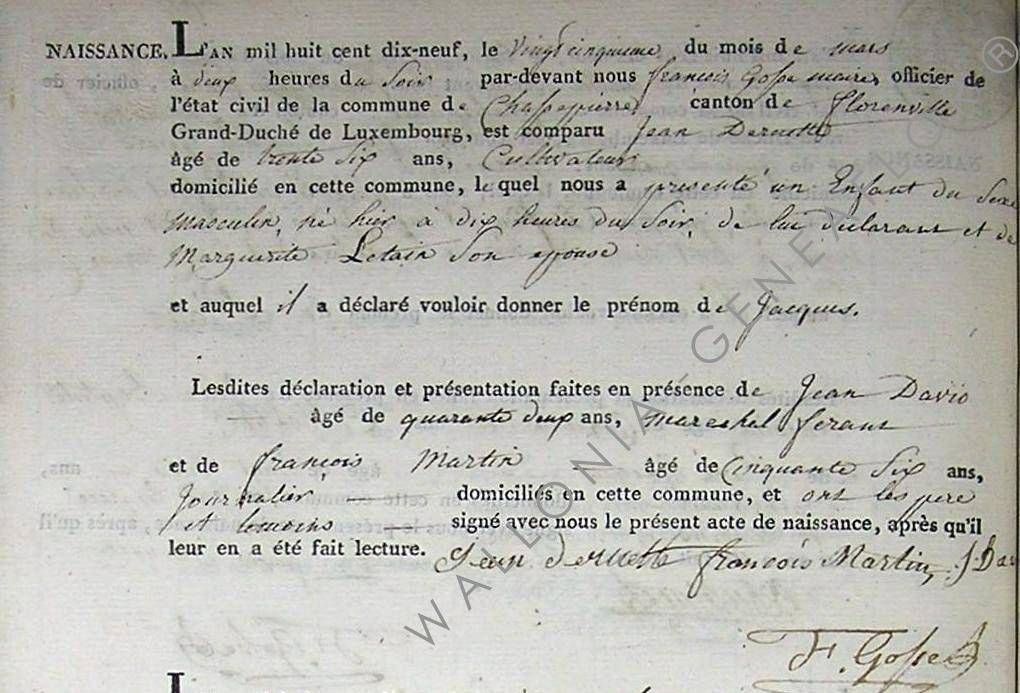 NAISSANCE. L'AN mil huit cent dix-neuf, le vingt cinquieme du mois de mars
à deux heures du Soir par-devant nous françois Gosse maire, officier de
l'état civil de la commune de Chassepierre canton de florenville
Grand-Duché de Luxembourg, est comparu Jean Deruette
âgé de trente Six ans, Cultivateur
domicilié en cette commune, lequel nous a présenté un Enfant du Sexe
masculin, né hier à dix heures du Soir, de lui déclarant et de
Marguerite Letain Son epouse
et auquel il a déclaré vouloir donner le prénom de Jacques.
Lesdites déclaration et présentation faites en présence de Jean David
âgé de quarante deux ans, mareshal ferant
et de françois Martin âgé de Cinquante Six ans,
Journalier, domiciliés en cette commune, et ont les pere
et temoins signé avec nous le présent acte de naissance, après qu'il
leur en a été fait lecture. Jean deruette françois Martin, J Dav
F. Gosse
WALLONIA-GENEALOGIE
®